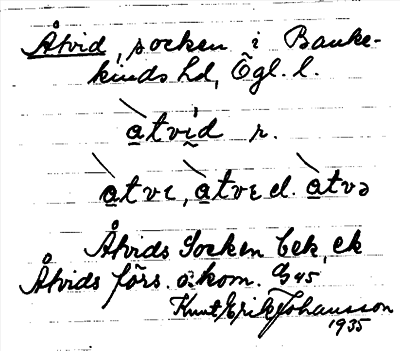 Åtvid, socken i Banke-
kinds hd, Ögl. l.
a̲tvi̲d r.
a̲tvɪ, a̲tvɛ el. a̲tvə
Åtvids Socken bek. ek
Åtvids förs. o. kom.
Knut Erik Johansson
1935